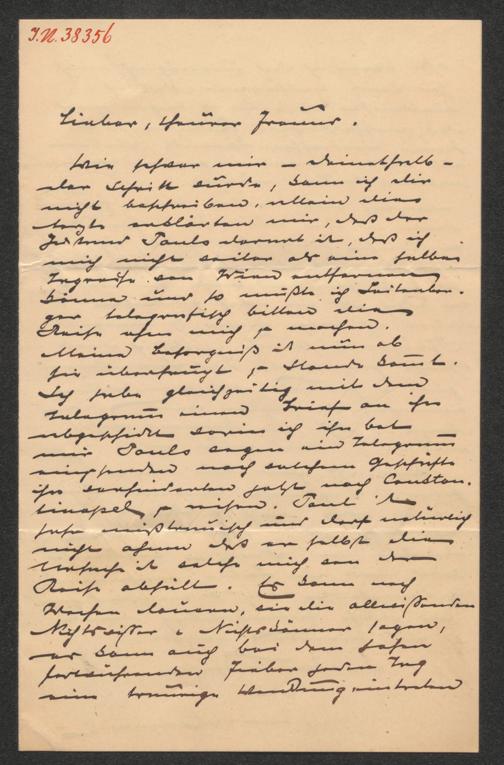 I.N. 38356
Lieber, theurer Freund.
Wie schwer mir – deinethalb –
der Schritt wurde, kann ich dir
nicht beschreiben. Allein die
Ärzte erklärten mir, daß der
Zustand Pauls derart ist, daß ich
mich nicht weiter als eine halbe
Tagreise von Wien entfernen
könne und so mußte ich
telegrafisch bitten die
Reise ohne mich zu machen.
Meine Besorgniß ist nun ob
sie überhaupt zu Stande kommt.
Ich habe gleichzeitig mit dem
Telegramm einen Brief an ihn
abgeschickt worin ich ihn bat
mir Pauls wegen ein Telegramm
einzusenden nach welchem Geschäfte
ihn verhinderten jetzt nach Constan-
tinopel zu reisen. Paul ist
sehr mißtrauisch und darf natürlich
nicht ahnen daß er selbst die
Ursache ist welche mich von der
Reise abhält. Es kann noch
Wochen dauern, wie die allwissenden
Nichtswisser & Nichtskönner sagen,
es kann auch bei dem hohen
fortwährenden Fieber jeden Tag
eine traurige Wendung eintreten